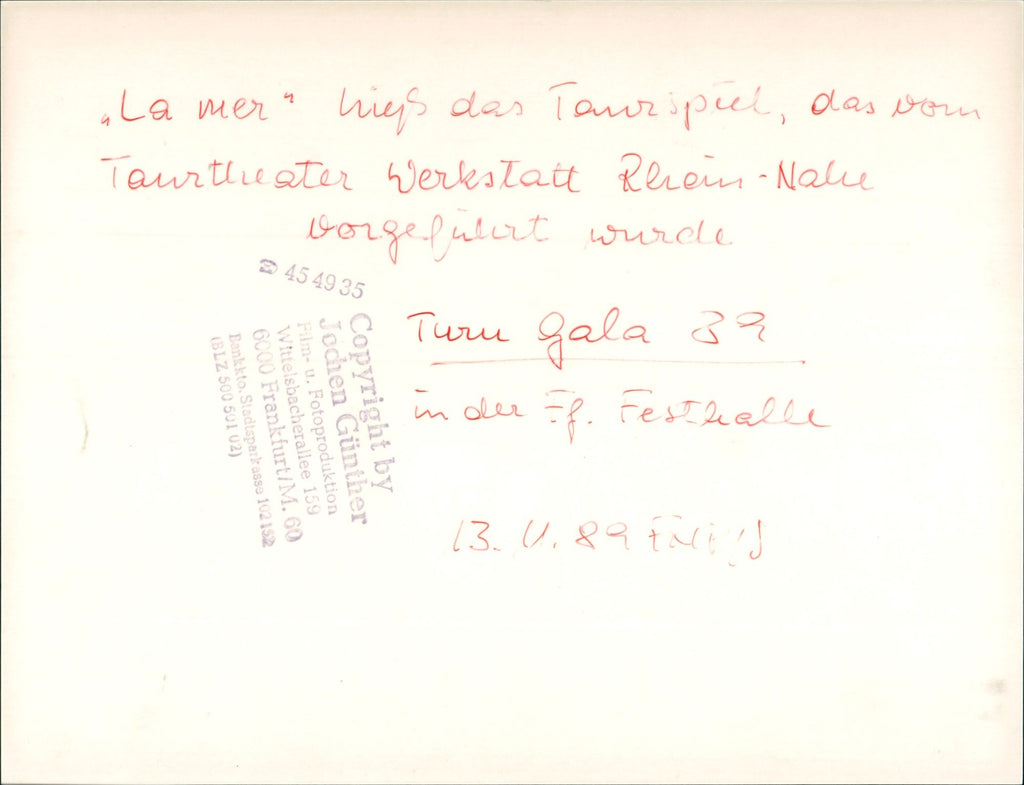 „La mer“ hieß das Tanzspiel, das vom
Tanztheater Werkstatt Rhein-Nahe
vorgeführt wurde
☎ 454935
Copyright by
Jochen Günther
Film- u. Fotoproduktion
Wittelsbacherallee 159
6000 Frankfurt/M. 60
Bankkto. Stadtsparkasse 102152
(BLZ 500 501 02)
Turn Gala 89
in der Ff. Festhalle
13. 11. 89